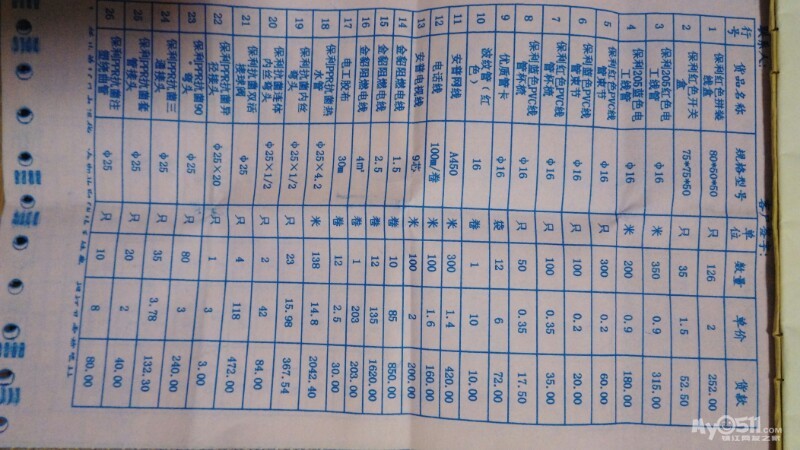 行号 货品名称 规格型号 单位 数量 单价 货款
1 保利红色拼装线盒 80*50*50 只 126 2 252.00
2 保利红色开关盒 75*75*50 只 35 1.5 52.50
3 保利205红色电工线管 φ16 米 350 0.9 315.00
4 保利205蓝色电工线管 φ16 米 200 0.9 180.00
5 保利红色PVC线管接节 φ16 只 300 0.2 60.00
6 保利蓝色PVC线管接节 φ16 只 100 0.2 20.00
7 保利红色PVC线管杯梳 φ16 只 100 0.35 35.00
8 保利蓝色PVC线管杯梳 φ16 只 50 0.35 17.50
9 优质管卡 φ16 袋 12 6 72.00
10 波纹管(红色) 16 卷 1 10 10.00
11 安普网线 A450 米 300 1.4 420.00
12 电话线 100m/卷 米 100 1.6 160.00
13 安普电视线 9芯 米 100 2 200.00
14 金貂阻燃电线 1.5 卷 10 85 850.00
15 金貂阻燃电线 2.5 卷 12 135 1620.00
16 金貂阻燃电线 4㎡ 卷 1 203 203.00
17 电工胶布 30m 卷 12 2.5 30.00
18 保利PPR抗菌热水管 φ25×4.2 米 138 14.8 2042.40
19 保利PPR抗菌内丝弯头 φ25×1/2 只 23 15.98 367.54
20 保利抗菌连体内丝弯头 φ25×1/2 只 2 42 84.00
21 保利抗菌双活接球阀 φ25 只 4 118 472.00
22 保利PPR抗菌异径接头 φ25×20 只 1 3 3.00
23 保利PPR抗菌90°弯头 φ25 只 80 3 240.00
24 保利PPR抗菌三通接头 φ25 只 35 3.78 132.30
25 保利PPR抗菌套管接头 φ25 只 20 2 40.00
26 保利PPR抗菌注塑绕曲管 φ25 只 10 8 80.00
客户签字:
My0511.COM
镇江网友之家